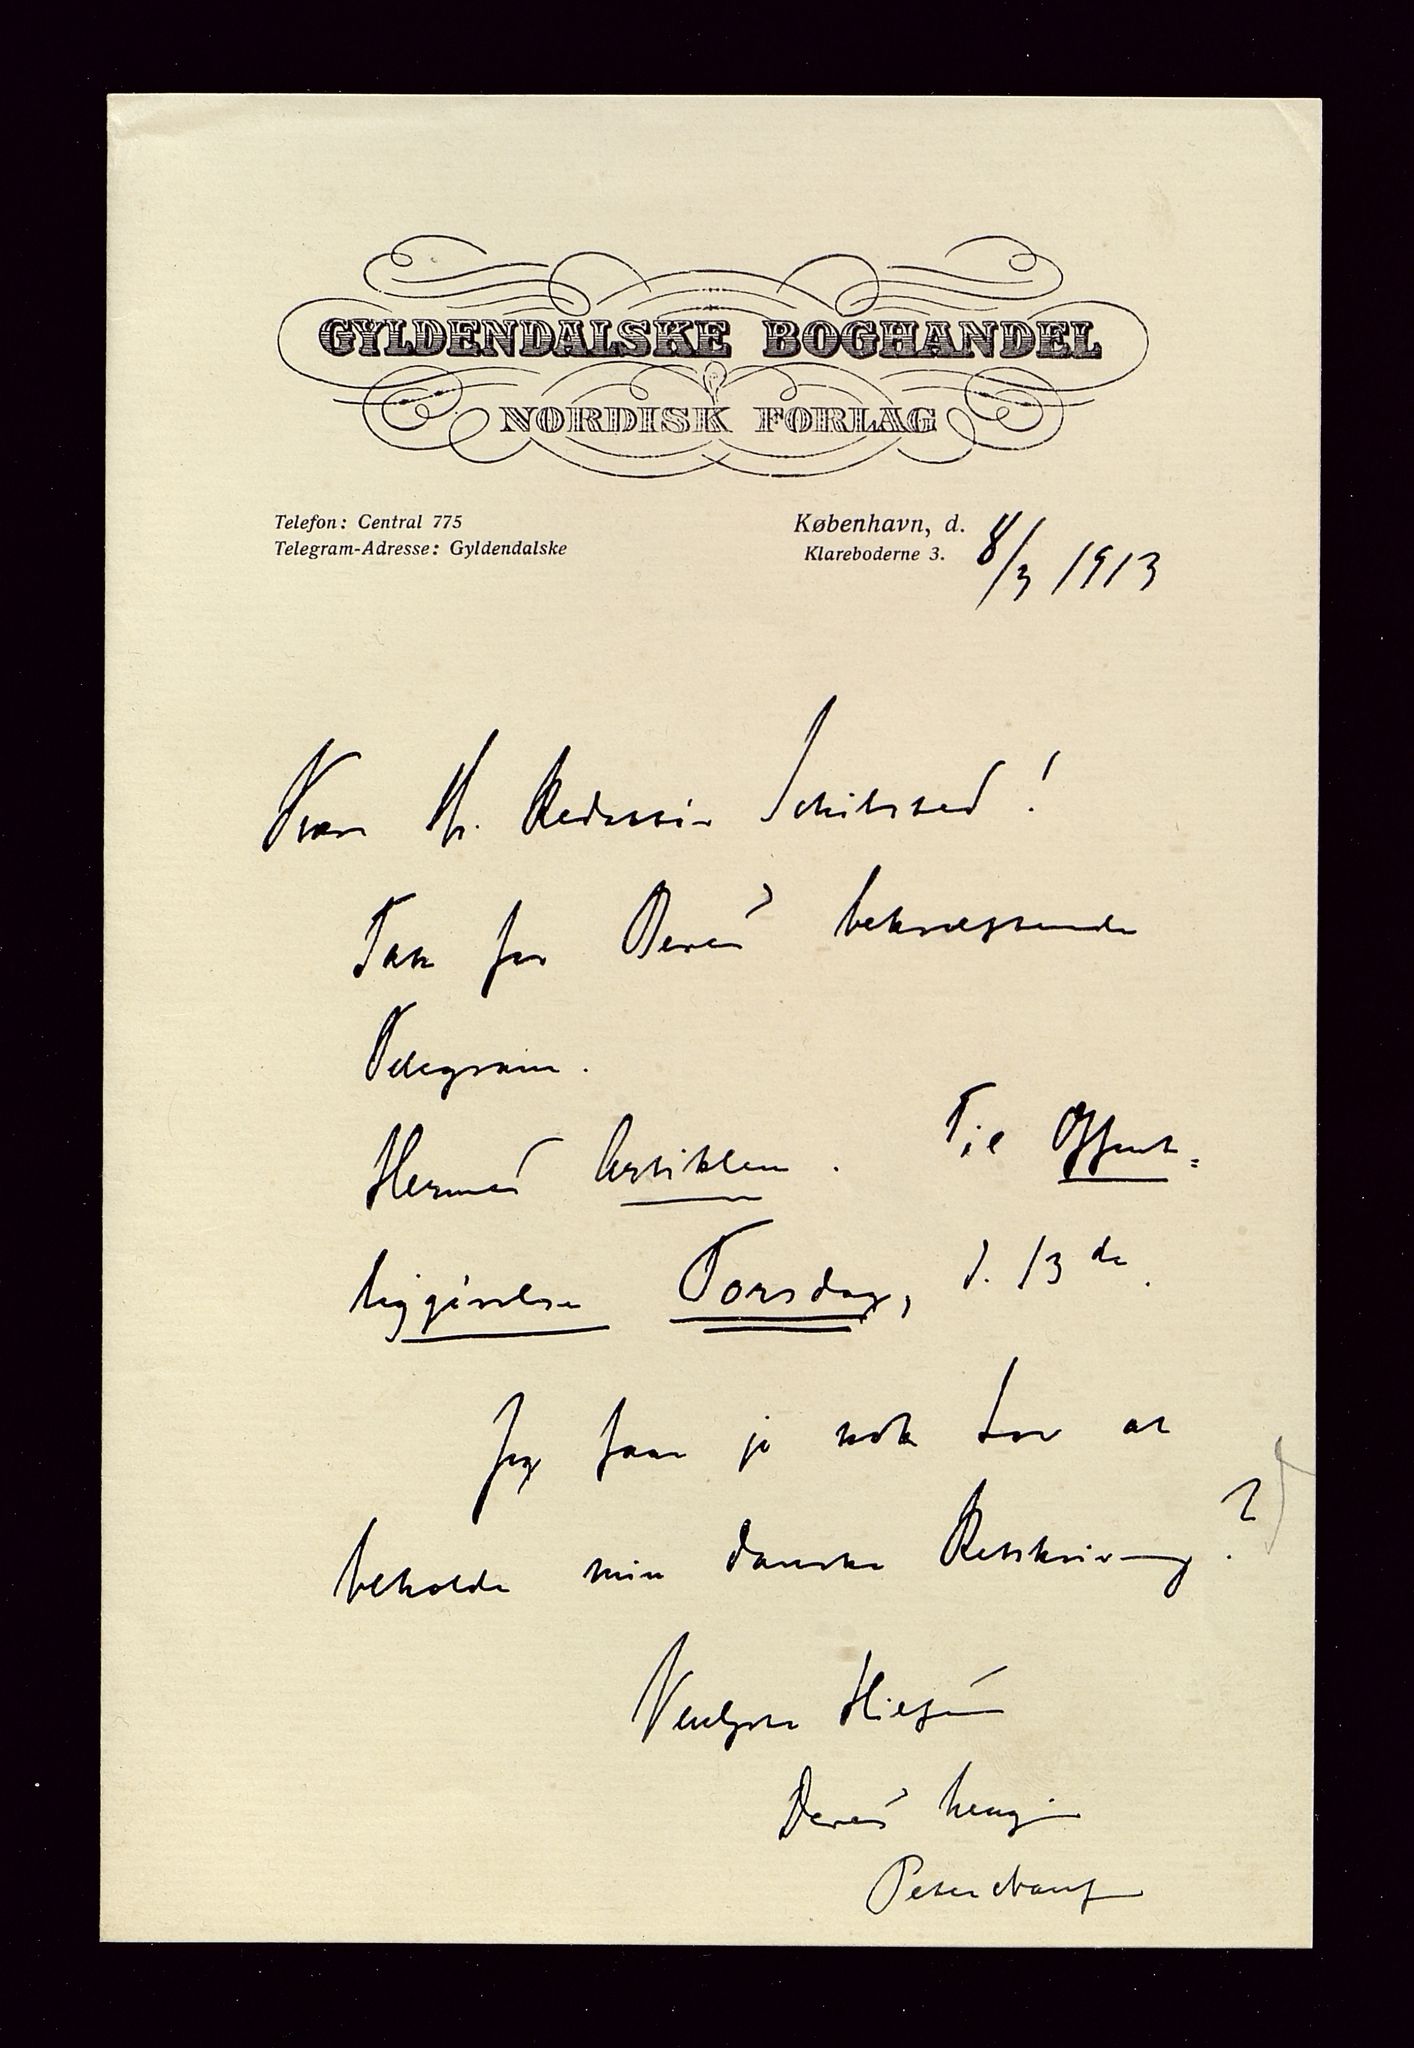 GYLDENDALSKE BOGHANDEL
NORDISK FORLAG
Telefon: Central 775
Telegram-Adresse: Gyldendalske
København, d. 8/3 1913
Klareboderne 3.
Kære Hr. Redaktør Schibsted!
Tak for Deres bekræftende
Telegram.
Hermed Artiklen. Til Offent=
liggørelse Torsdag, d. 13de.
Jeg faar jo nok Lov at
beholde min danske Retskrivning?
Venligste Hilsen
Deres heng.
Peter Nansen